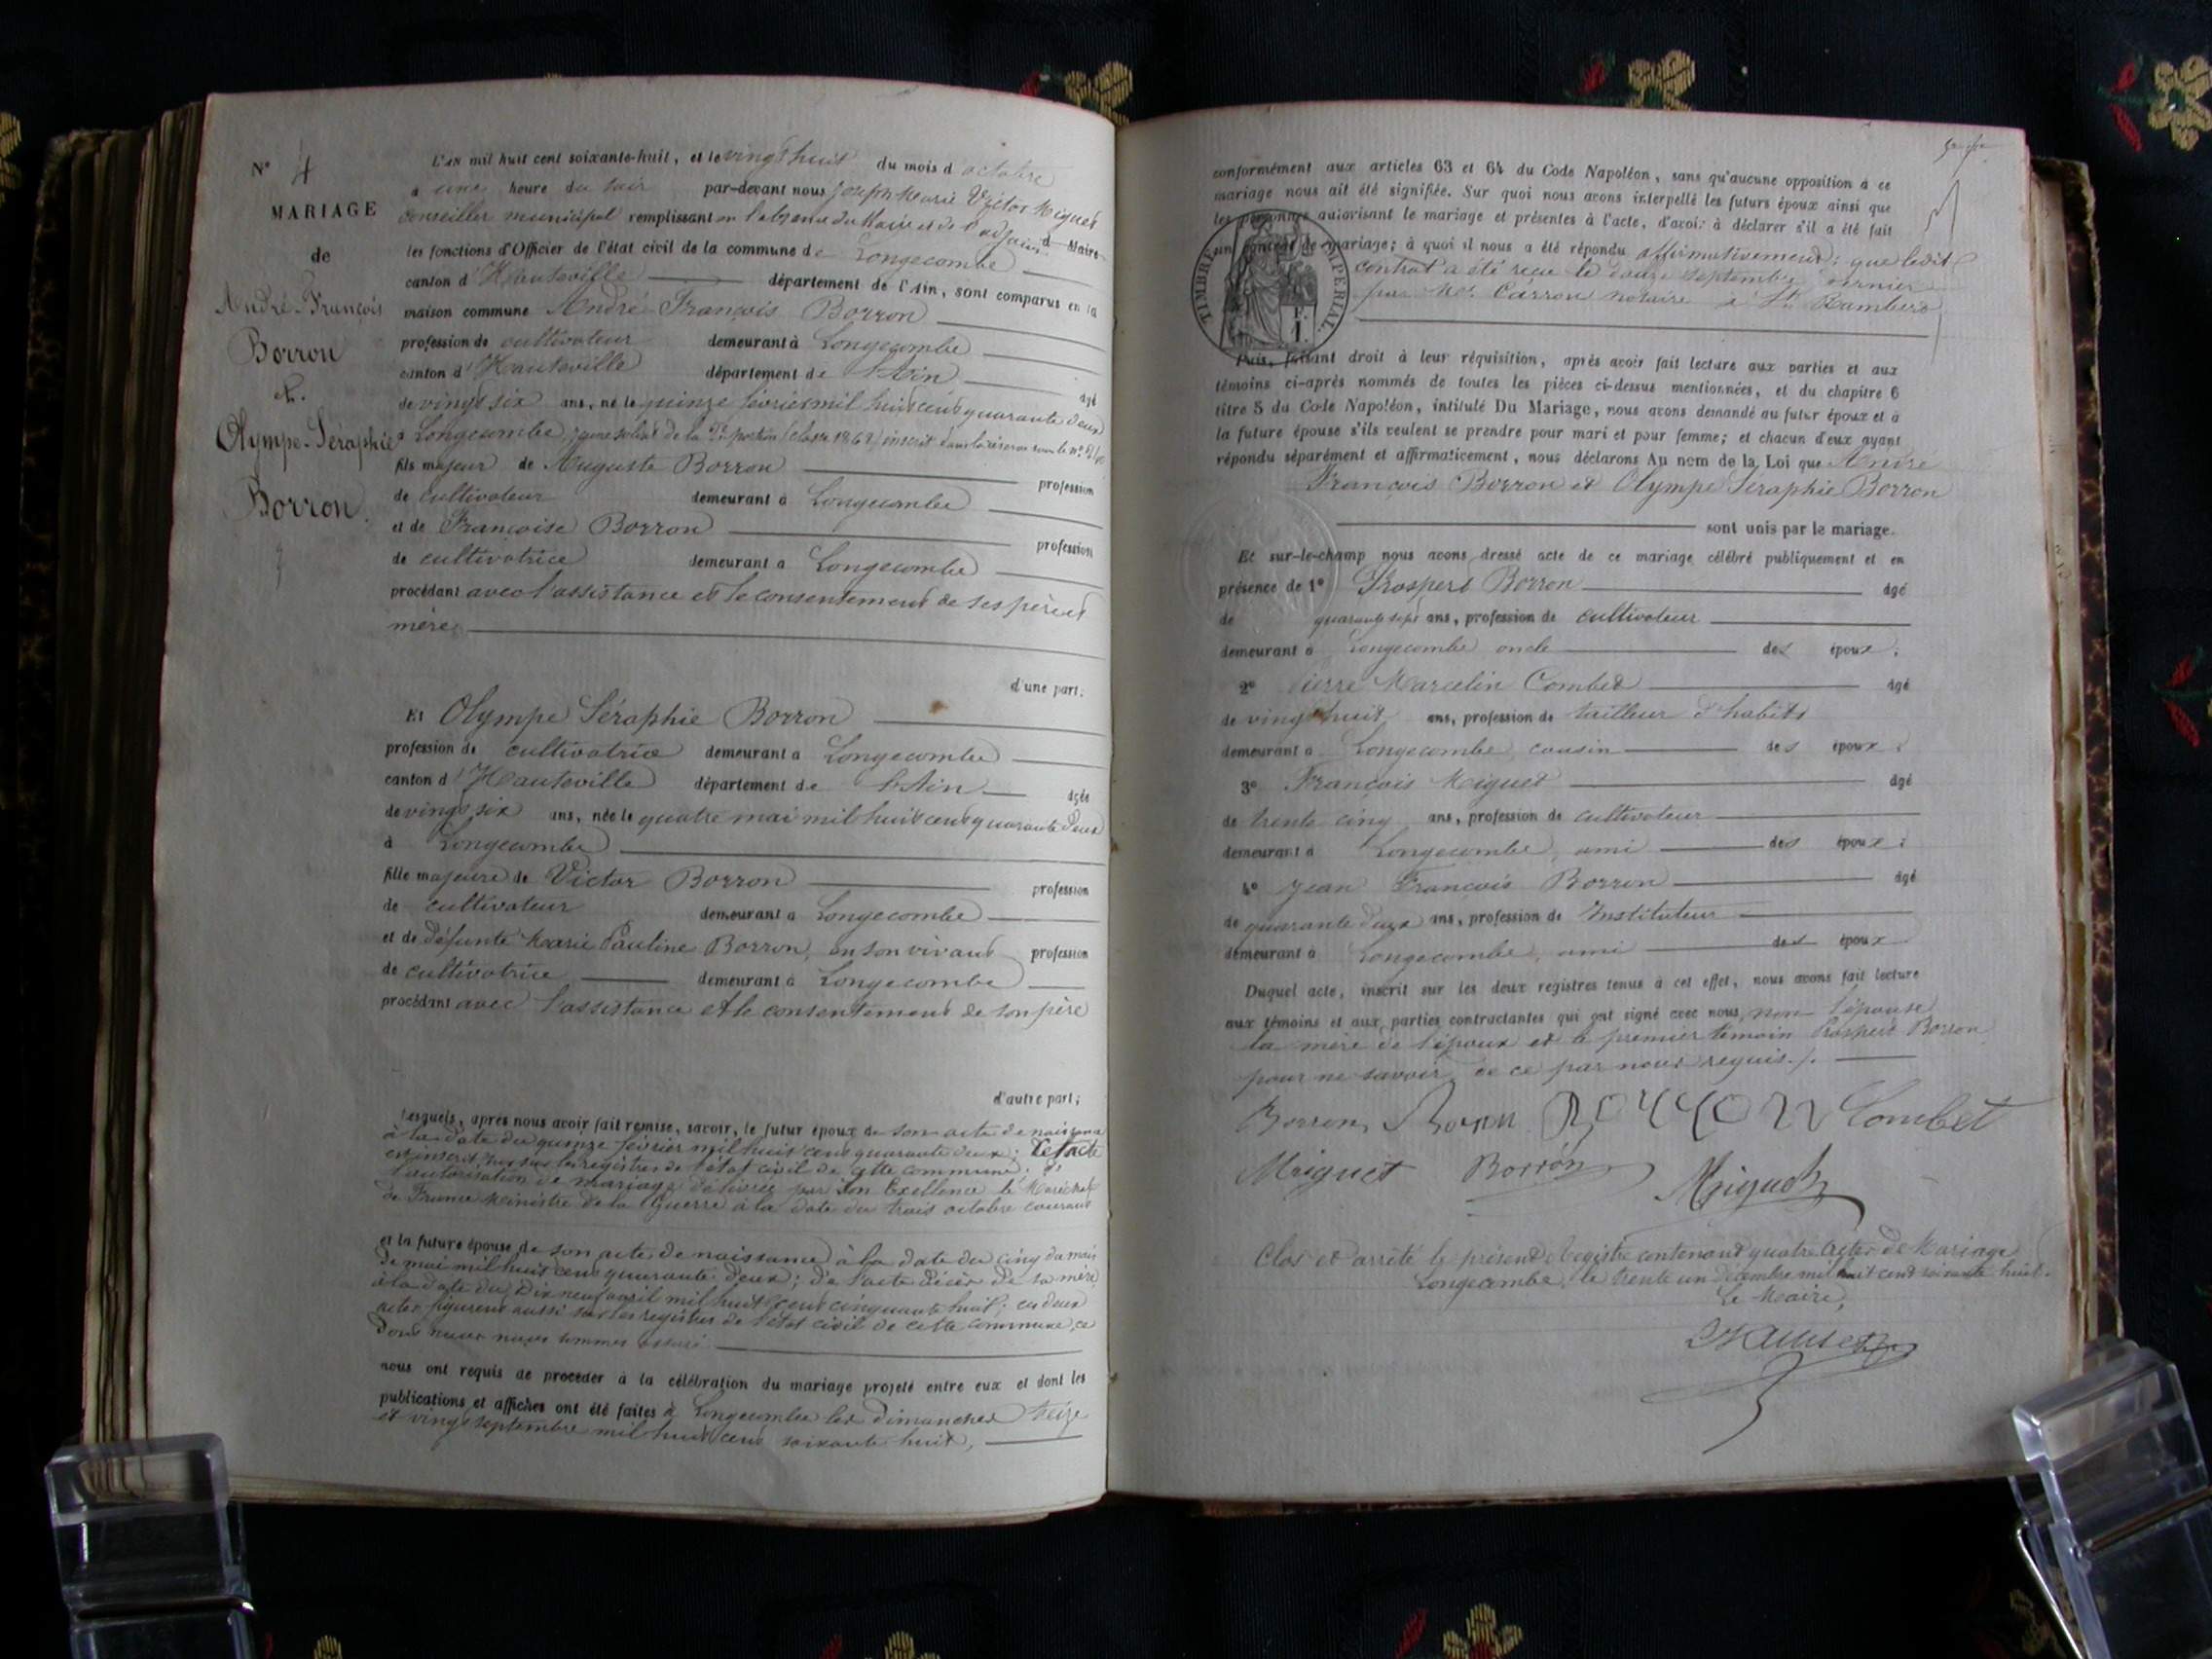 N° 4
MARIAGE
de
André-François
Borron
et
Olympe-Séraphie
Borron
L'AN mil huit cent soixante-huit, et le vingt huit du mois d'octobre
à une heure du soir par-devant nous Joseph Marie Victor Miguet
Conseiller municipal remplissant en l'absence du Maire et de l'adjoint d Maire
les fonctions d'Officier de l'état civil de la commune de Longecombe
canton d'Hauteville département de l'Ain, sont comparus en la
maison commune André François Borron
profession de cultivateur demeurant à Longecombe
canton d'Hauteville département de l'Ain âgé
de vingt six ans, né le quinze février mil huit cent quarante deux
à Longecombe, jeune soldat de la 2e portion (classe 1862) inscrit dans la réserve sous le n°
fils majeur de Auguste Borron profession
de cultivateur demeurant à Longecombe
et de Françoise Borron profession
de cultivatrice demeurant à Longecombe
procédant avec l'assistance et le consentement de ses père et
mère
d'une part;
Et Olympe Séraphie Borron
profession de cultivatrice demeurant à Longecombe
canton d'Hauteville département de l'Ain âgée
de vingt six ans, née le quatre mai mil huit cent quarante deux
à Longecombe
fille majeure de Victor Borron profession
de cultivateur demeurant à Longecombe
et de défunte Marie Pauline Borron, en son vivant profession
de cultivatrice demeurant à Longecombe
procédant avec l'assistance et le consentement de son père
d'autre part;
Lesquels, après nous avoir fait remise, savoir, le futur époux de son acte de naissance
à la date du quinze février mil huit cent quarante deux; Cet acte
est inscrit sur les registres de l'état civil de cette commune; 2°
l'autorisation de mariage délivrée par Son Excellence le Maréchal
de France Ministre de la Guerre à la date du trois octobre courant
et la future épouse de son acte de naissance à la date du cinq du mois
de mai mil huit cent quarante deux; de l'acte décès de sa mère
à la date du dix neuf avril mil huit cent cinquante huit; ces deux
actes figurent aussi sur les registres de l'état civil de cette commune, ce
dont nous nous sommes assuré
nous ont requis de procéder à la célébration du mariage projeté entre eux et dont les
publications et affiches ont été faites à Longecombe les dimanches treize
et vingt septembre mil huit cent soixante huit,
conformément aux articles 63 et 64 du Code Napoléon, sans qu'aucune opposition à ce
mariage nous ait été signifiée. Sur quoi nous avons interpellé les futurs époux ainsi que
les personnes autorisant le mariage et présentes à l'acte, d'avoir à déclarer s'il a été fait
un contrat de mariage; à quoi il nous a été répondu affirmativement; que ledit
contrat a été reçu le douze septembre dernier
par Me. Carron notaire à St. Rambert
TIMBRE IMPÉRIAL
1 F.
Puis, faisant droit à leur réquisition, après avoir fait lecture aux parties et aux
témoins ci-après nommés de toutes les pièces ci-dessus mentionnées, et du chapitre 6
titre 5 du Code Napoléon, intitulé Du Mariage, nous avons demandé au futur époux et à
la future épouse s'ils veulent se prendre pour mari et pour femme; et chacun d'eux ayant
répondu séparément et affirmativement, nous déclarons Au nom de la Loi que André
François Borron et Olympe Séraphie Borron
sont unis par le mariage.
Et sur-le-champ nous avons dressé acte de ce mariage célébré publiquement et en
présence de 1° Prospert Borron âgé
de quarante sept ans, profession de cultivateur
demeurant à Longecombe oncle des époux;
2° Pierre Marcelin Combet âgé
de vingt huit ans, profession de tailleur d'habits
demeurant à Longecombe, cousin des époux;
3° François Miguet âgé
de trente cinq ans, profession de cultivateur
demeurant à Longecombe, ami des époux;
4° Jean François Borron âgé
de quarante deux ans, profession de Instituteur
demeurant à Longecombe, ami des époux.
Duquel acte, inscrit sur les deux registres tenus à cet effet, nous avons fait lecture
aux témoins et aux parties contractantes qui ont signé avec nous, non l'épouse
la mère de l'époux et le premier témoin Prospert Borron
pour ne savoir, de ce par nous requis./.
Borron Borron BORRON Combet
Miguet Borron Miguet
Clos et arrêté le présent Registre contenant quatre actes de Mariage
Longecombe, le trente un décembre mil huit cent soixante huit.
Le Maire,